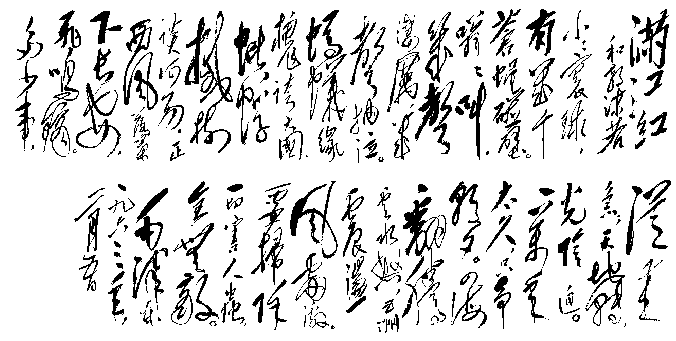 满江红
和郭沫若
小小寰球,
有几个
苍蝇碰壁。
嗡嗡叫,
几声
凄厉,几
声抽泣。
蚂蚁缘
槐夸大国,
蚍蜉
撼树
谈何易。正
西风落叶
下长安,
飞鸣镝。
多少事,
从来
急。天地转,
光阴迫。
一万年
太久,只争
朝夕。四海
翻腾
云水怒,五洲
震荡
风雷激。
要扫除
一切害人虫,
全无敌。
毛泽东
一九六三年